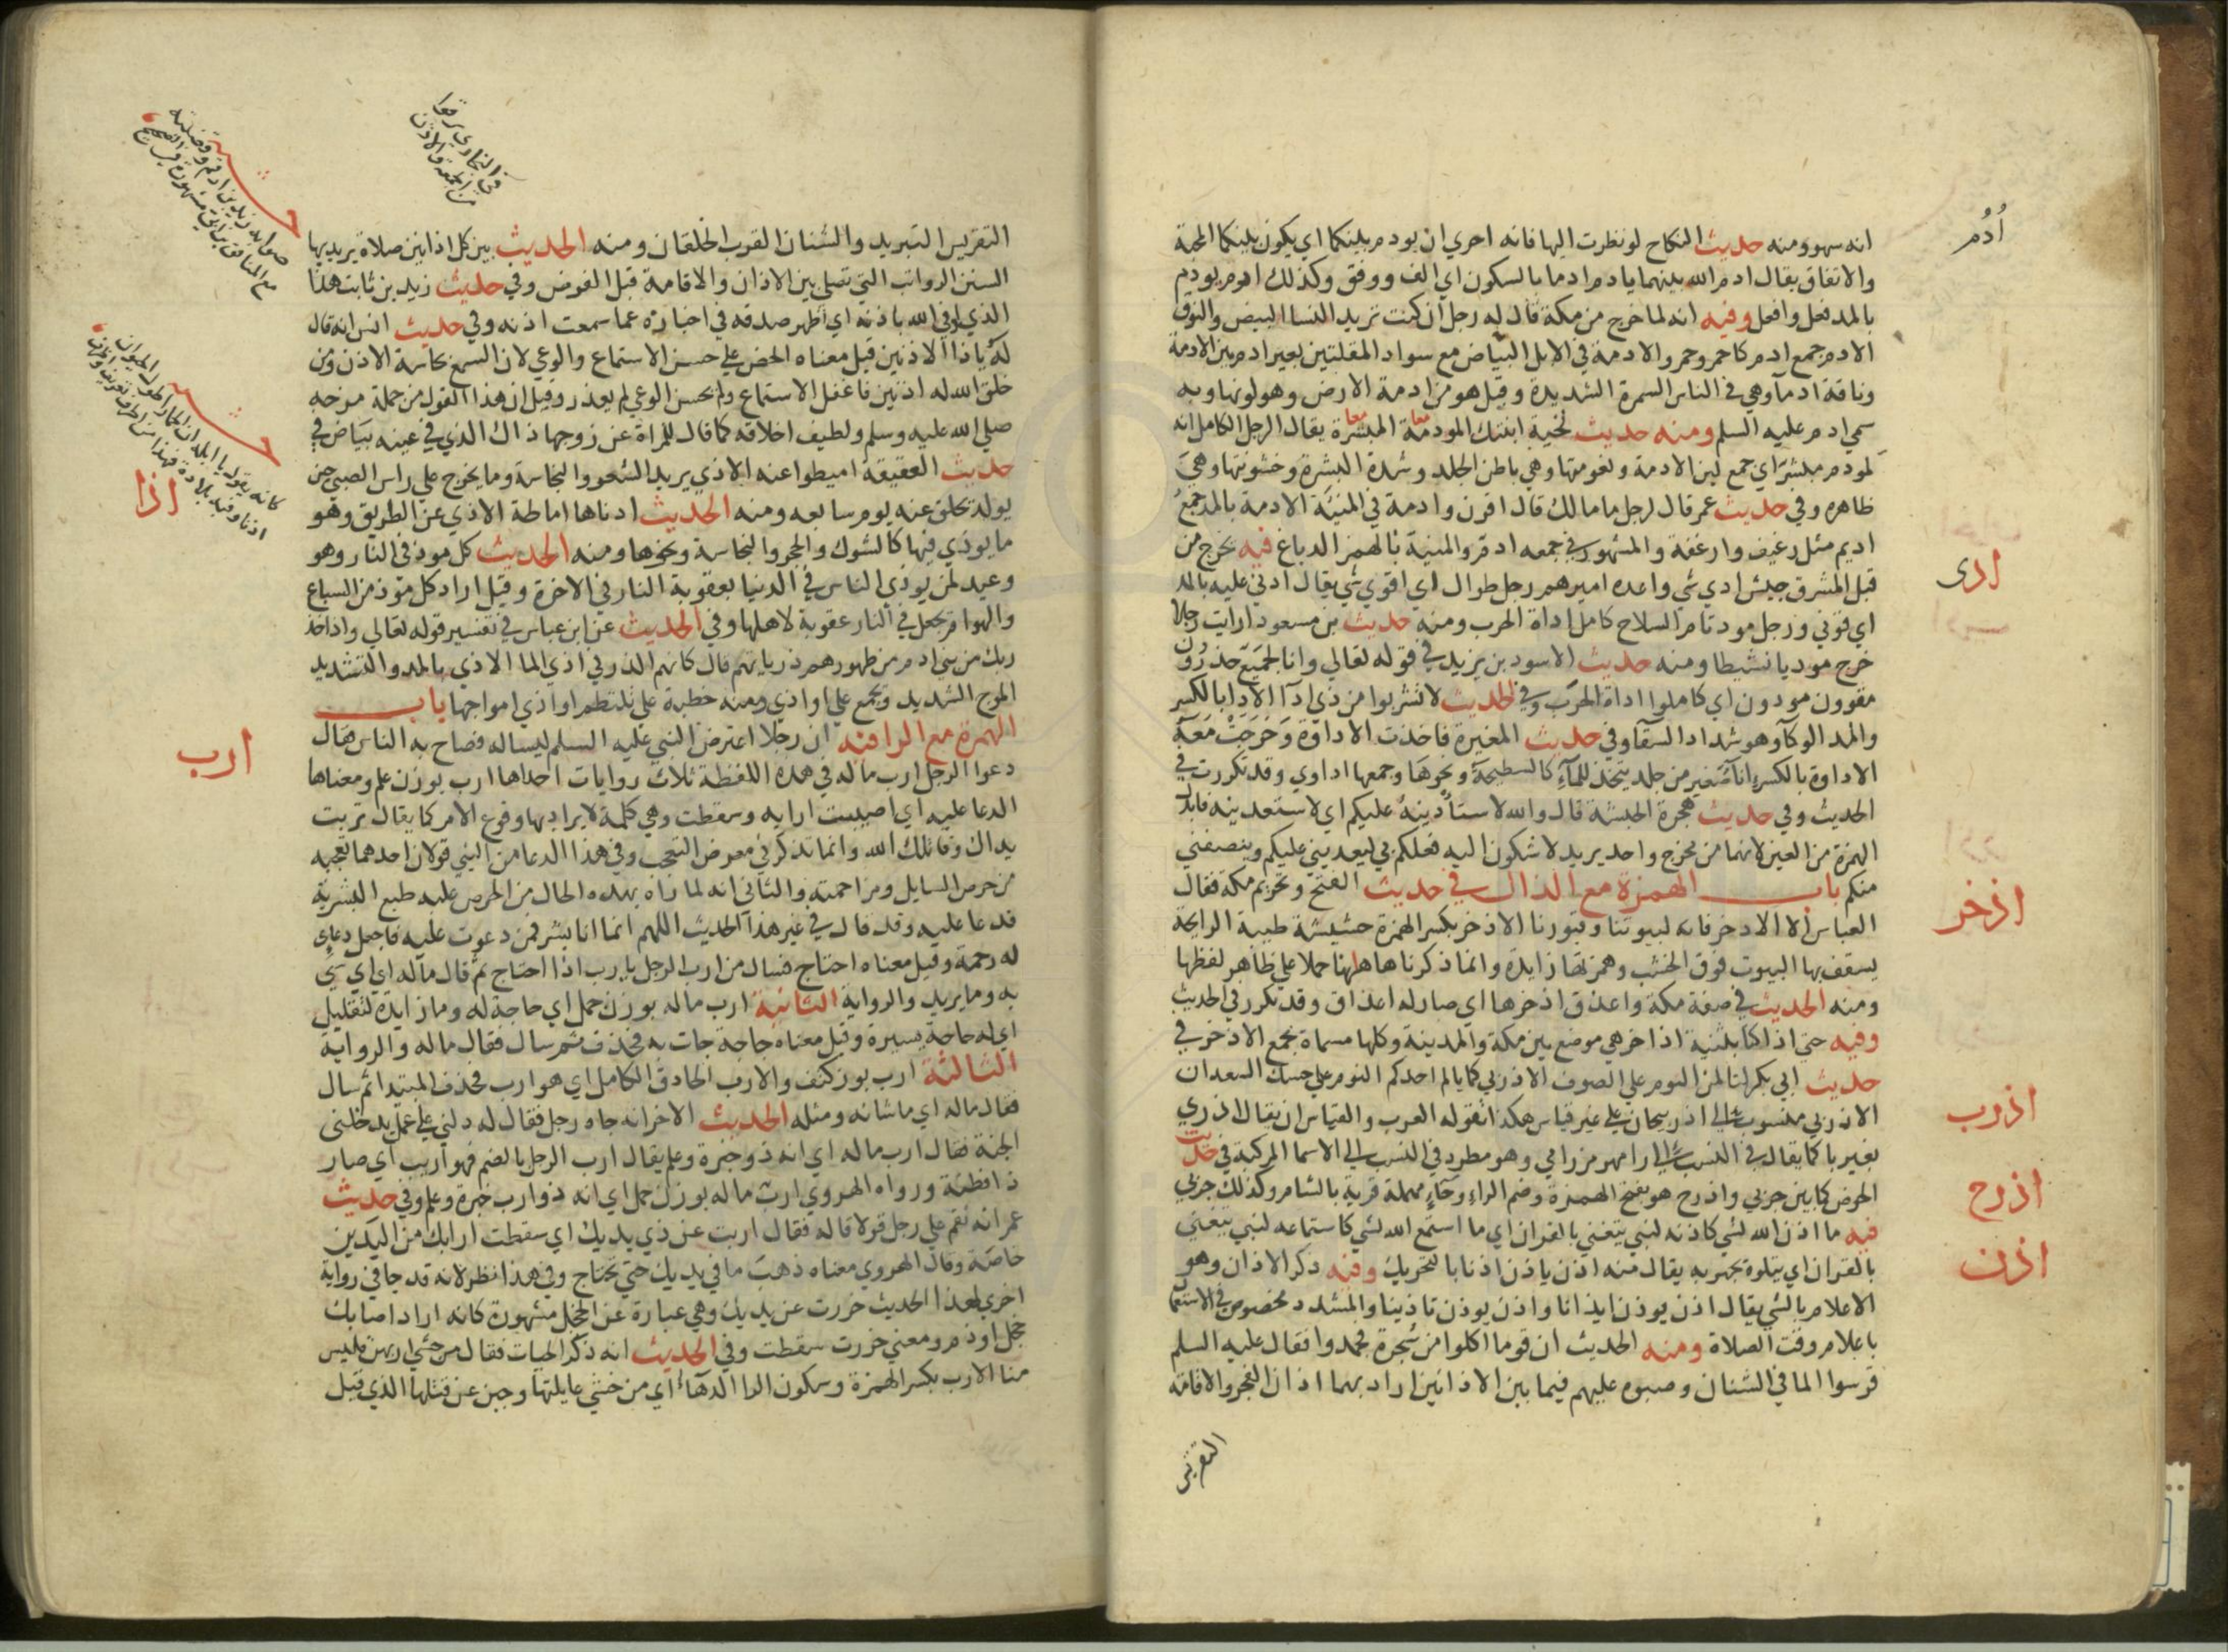 أُدُم
انه سهو ومنه حديث النكاح لو نظرت اليها فانه احري ان يودم بينكما اي يكون بينكما المحبة
والاتفاق يقال ادم الله بينهما يادم ادما بالسكون اي الف ووفق وكذلك ادم يودم
بالمد فعل وافعل وفيه انه لما خرج من مكة قال له رجل ان كنت تريد النسا البيض والنوق
الادم جمع ادم كاحمر وحمر والادمة في الابل البياض مع سواد المقلتين بعير ادم بين الادمة
وناقة ادمآ وهي في الناس السمرة الشديدة وقيل هو من ادمة الارض وهو لونها وبه
سمي ادم عليه السلم ومنه حديث نجية ابنتك المودمة المبشرة يقال الرجل الكامل انه
لمودم مبشر اي جمع لين الادمة ونعومتها وهي باطن الجلد وشدة البشرة وخشونتها وهي
ظاهره وفي حديث عمر قال لرجل ما مالك قال اقرن وادمة في المنيئة الادمة بالمد جمع
اديم مثل رغيف وارغفة والمشهور في جمعه ادم والمنية بالهمز الدباغ فيه يخرج من
ادى
قبل المشرق جيش ادي شي واعده اميرهم رجل طوال اي اقوي شي يقال ادني عليه بالمد
اي قوني ورجل مود تام السلاح كامل اداة الحرب ومنه حديث بن مسعود ارايت رجلا
خرج موديا نشيطا ومنه حديث الاسود بن يزيد في قوله تعالي وانا لجميع حذرون
مقوون مودون اي كاملوا اداة الحرب وفي الحديث لا تشربوا من ذي ادآ الادا بالكسر
والمد الوكآ وهو شداد السقآ وفي حديث المغيرة فاخذت الاداوة وخرجت معه
الاداوة بالكسر انآ صغير من جلد يتخذ للمآء كالسطيحة ونحوها وجمعها اداوي وقد تكررت في
الحديث وفي حديث هجرة الحبشة قال والله لاستادينه عليكم اي لاستعدينه فابدل
الهمزة من العين لانهما من مخرج واحد يريد لاشكون اليه فعلكم بي ليعديني عليكم وينصفني
منكم باب الهمزة مع الذال في حديث الفتح وتحريم مكة فقال
اذخر
العباس الا الاذخر فانه لبيوتنا وقبورنا الاذخر بكسر الهمزة حشيشة طيبة الرايحة
يسقف بها البيوت فوق الخشب وهمزتها زايدة وانما ذكرناها هاهنا حملا علي ظاهر لفظها
ومنه الحديث في صفة مكة واعذق اذخرها اي صار له اعذاق وقد تكرر في الحديث
وفيه حتي اذا كنا بثنية اذاخر هي موضع بين مكة والمدينة وكلها مسماة بجمع الاذخر في
حديث ابي بكر لتالمن النوم علي الصوف الاذربي كما يالم احدكم النوم علي حسك السعدان
اذرب
الاذربي منسوب الي اذربيجان علي غير قياس هكذا تقوله العرب والقياس ان يقال اذري
بغير با كما يقال في النسب الي رامهرمز رامي وهو مطرد في النسب الي الاسما المركبة في حديث
اذرح
الحوض كما بين جربي واذرح هو بفتح الهمزة وضم الراء وحاء مهملة قرية بالشام وكذلك جربي
فيه ما اذن الله لشي كاذنه لنبي يتغني بالقران اي ما استمع الله لشي كاستماعه لنبي يتغني
اذن
بالقران اي يتلوه يجهر به يقال منه اذن ياذن اذنا بالتحريك وفيه ذكر الاذان وهو
الاعلام بالشي يقال اذن يوذن ايذانا واذن يوذن تاذينا والمشدد مخصوص في الاستعمال
باعلام وقت الصلاة ومنه الحديث ان قوما اكلوا من شجرة فحمدوا فقال عليه السلم
قرسوا الما في الشنان وصبوه عليهم فيما بين الاذانين اراد بهما اذان الفجر والاقامة
التقريس
التقريس التبريد والشنان القرب الخلقان ومنه الحديث بين كل اذانين صلاة يريد بها
السنن الرواتب التي تصلي بين الاذان والاقامة قبل الفرض وفي حديث زيد بن ثابت هذا
الذي اوفي الله باذنه اي اظهر صدقه في اخباره عما سمعت اذنه وفي حديث انس انه قال
له يا ذا الاذنين قيل معناه الحض علي حسن الاستماع والوعي لان السمع بحاسة الاذن ومن
خلق الله له اذنين فاغفل الاستماع ولم يحسن الوعي لم يعذر وقيل ان هذا القول من جملة مزحه
صلي الله عليه وسلم ولطيف اخلاقه كما قال للمراة عن زوجها ذاك الذي في عينه بياض في
اذا
حديث العقيقة اميطوا عنه الاذي يريد الشعر والنجاسة وما يخرج علي راس الصبي حين
يولد تحلق عنه يوم سابعه ومنه الحديث ادناها اماطة الاذي عن الطريق وهو
ما يوذي فيها كالشوك والحجر والنجاسة ونحوها ومنه الحديث كل موذ في النار وهو
وعيد لمن يوذي الناس في الدنيا بعقوبة النار في الاخرة وقيل اراد كل موذ من السباع
والهوام يجعل في النار عقوبة لاهلها وفي الحديث عن ابن عباس في تفسير قوله تعالي واذ اخذ
ربك من بني ادم من ظهورهم ذرياتهم قال كانهم الذر في اذي الما الاذي بالمد والتشديد
الموج الشديد ويجمع علي اواذي ومنه خطبة علي تلتطم اواذي امواجها باب
ارب
الهمزة مع الرا فيه ان رجلا اعترض النبي عليه السلم ليساله فصاح به الناس فقال
دعوا الرجل ارب ماله في هذه اللفظة ثلاث روايات احداها ارب بوزن علم ومعناها
الدعا عليه اي اصيبت ارابه وسقطت وهي كلمة لا يراد بها وقوع الامر كما يقال تربت
يداك وقاتلك الله وانما تذكر في معرض التعجب وفي هذا الدعا من النبي قولان احدهما تعجبه
من حرص السايل ومزاحمته والثاني انه لما راه بهذه الحال من الحرص غلبه طبع البشرية
فدعا عليه وقد قال في غير هذا الحديث اللهم انما انا بشر فمن دعوت عليه فاجعل دعاي
له رحمة وقيل معناه احتاج فسال من ارب الرجل يارب اذا احتاج ثم قال ماله اي اي شي
به وما يريد والرواية الثانية ارب ماله بوزن جمل اي حاجة له وما زايدة لتقليل
اي له حاجة يسيرة وقيل معناه حاجة جات به فحذف ثم سال فقال ماله والرواية
الثالثة ارب بوزن كتف والارب الحاذق الكامل اي هو ارب فحذف المبتدا ثم سال
فقال ماله اي ما شانه ومثله الحديث الاخر انه جاه رجل فقال له دلني علي عمل يدخلني
الجنة فقال ارب ماله اي انه ذو خبرة وعلم يقال ارب الرجل بالضم فهو اريب اي صار
ذا فطنة ورواه الهروي ارب ماله بوزن حمل اي انه ذو ارب خبرة وعلم وفي حديث
عمر انه نقم علي رجل قولا قاله فقال اربت عن ذي يديك اي سقطت ارابك من اليدين
خاصة وقال الهروي معناه ذهب ما في يديك حتي تحتاج وفي هذا نظر لانه قد جا في رواية
اخري لهذا الحديث خررت عن يديك وهي عبارة عن الخجل مشهورة كانه اراد اصابك
خجل او ذم ومعني خررت سقطت وفي الحديث انه ذكر الحيات فقال من خشي اربهن فليس
منا الارب بكسر الهمزة وسكون الرا الدهآء اي من خشي غايلتها وجبن عن قتلها الذي قيل